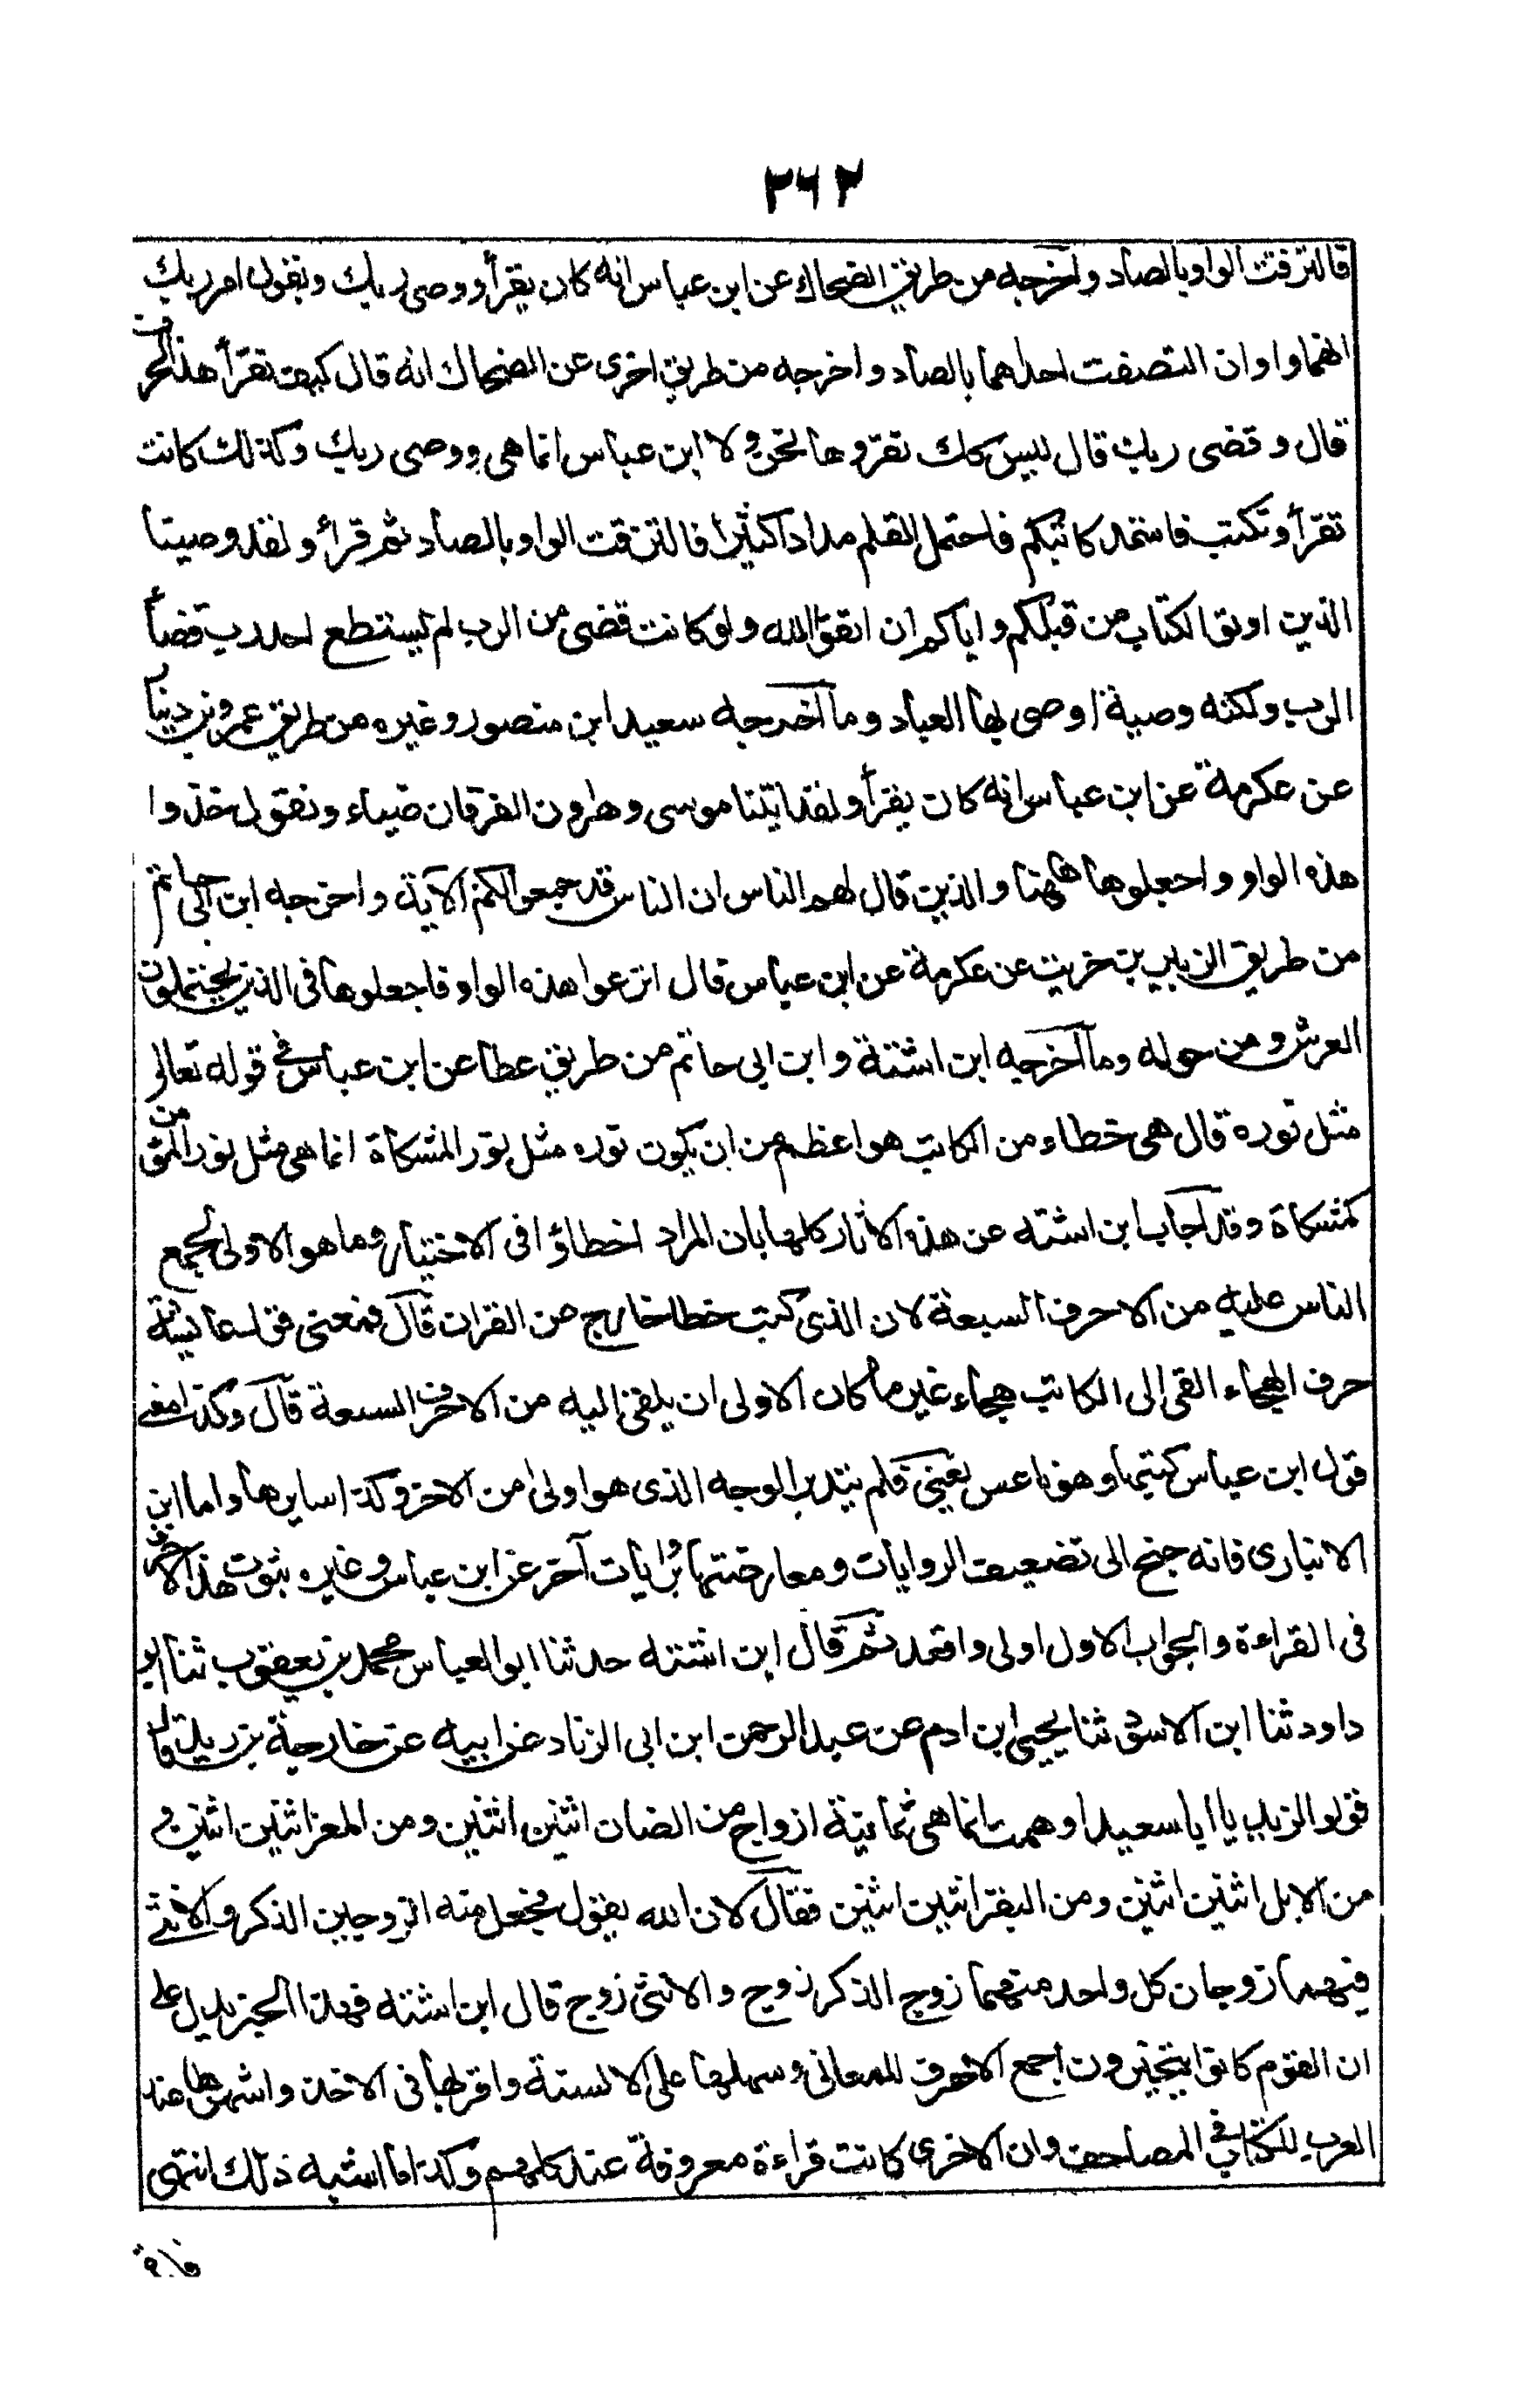 ٢٦٢
فالتزقت الواو بالصاد واخرجه من طريق الضحاك عن ابن عباس انه كان يقرأ ووصى ربك ويقول امر ربك
انهما واوان التصقت احداهما بالصاد واخرجه من طريق اخرى عن الضحاك انه قال كيف تقرأ هذا الحرف
قال وقضى ربك قال ليس كذلك نقرؤها نحن ولا ابن عباس انما هى ووصى ربك وكذلك كانت
تقرأ وتكتب فاستمد كاتبكم فاحتمل القلم مدادا كثيرا فالتزقت الواو بالصاد ثم قرأ ولقد وصينا
الذين اوتوا الكتاب من قبلكم واياكم ان اتقوا الله ولو كانت قضى من الرب لم يستطع احد رد قضأ
الرب ولكنه وصية اوصى بها العباد وما اخرجه سعيد ابن منصور وغيره من طريق عمرو بن دينار
عن عكرمة عن ابن عباس انه كان يقرأ ولقد اتينا موسى وهارون الفرقان ضياء ويقول خذوا
هذه الواو واجعلوها ههنا والذين قال لهم الناس ان الناس قد جمعوا لكم الآية واخرجه ابن ابى حاتم
من طريق الزبير بن خريت عن عكرمة عن ابن عباس قال انزعوا هذه الواو فاجعلوها فى الذين يحملون
العرش ومن حوله وما اخرجه ابن اشتة وابن ابى حاتم من طريق عطا عن ابن عباس فى قوله تعالى
مثل نوره قال هى خطاء من الكاتب هو اعظم من ان يكون نوره مثل نور المشكاة انما هى مثل نور المؤمن
كمشكاة وقد اجاب ابن اشته عن هذه الاثار كلها بان المراد اخطاؤا فى الاختيار وما هو الاولى لجمع
الناس عليه من الاحرف السبعة لان الذى كتب خطا خارج من القران قال فمعنى قول عايشة
حرف الهجاء القى الى الكاتب هجاء غير ما كان الاولى ان يلقى اليه من الاحرف السبعة قال وكذا معنى
قول ابن عباس كتبها وهو ناعس يعنى فلم يتدبر الوجه الذى هو اولى من الاخر وكذا سايرها واما ابن
الانبارى فانه جنح الى تضعيف الروايات ومعارضتها بروايات آخر عن ابن عباس وغيره بثبوت هذه الاحرف
فى القراءة والجواب الاول اولى واقعد ثم قال ابن اشته حدثنا ابو العباس محمد بن يعقوب ثنا ابو
داود ثنا ابن الاسود ثنا يحيى ابن ادم عن عبد الرحمن ابن ابى الزناد عن ابيه عن خارجة بن زيد قال
قولوا لزيد يا ابا سعيد اوهمت انما هى ثمانية ازواج من الضان اثنين اثنين ومن المعز اثنين اثنين و
من الابل اثنين اثنين ومن البقر اثنين اثنين فقال لان الله يقول فجعل منه الزوجين الذكر والانثى
فهما زوجان كل واحد منهما زوج الذكر زوج والانثى زوج قال ابن اشته فهذا الخبر يدل على
ان القوم كانوا يتخيرون اجمع الاحرف للمعانى وسهلها على الالسنة واقربها فى الاخذ واشهرها عند
العرب للكتاب فى المصاحف وان الاخرى كانت قراءة معروفة عند كلهم وكذا ما اشبه ذلك انتهى